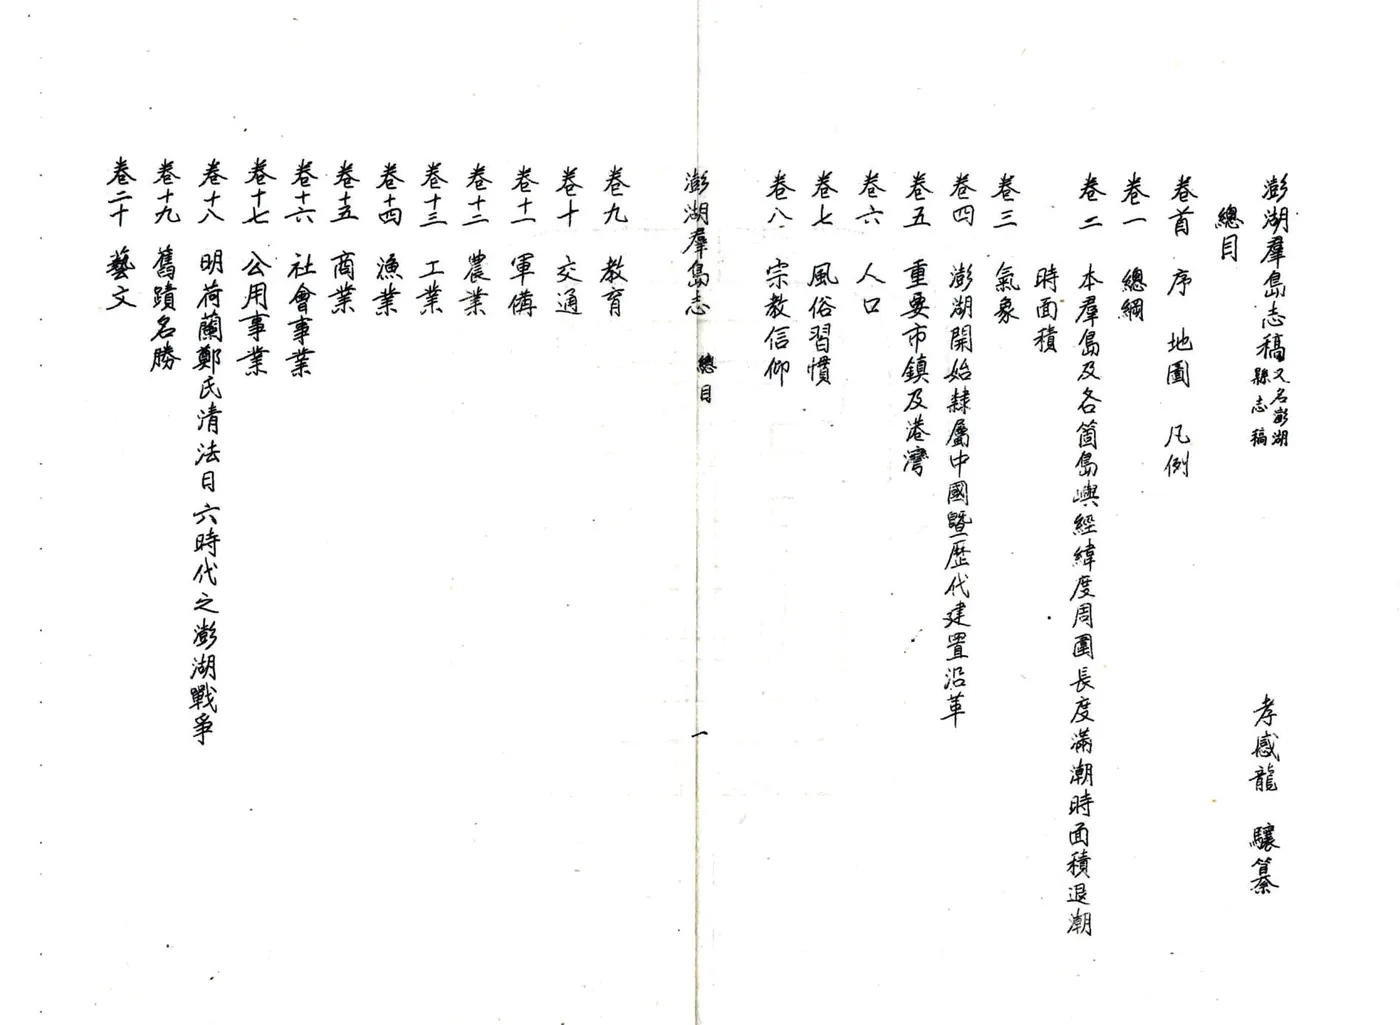 澎湖羣島志稿又名澎湖縣志稿
孝感龍　驤纂
總目
卷首　序　地圖　凡例
卷一　總綱
卷二　本羣島及各箇島嶼經緯度周圍長度滿潮時面積退潮
時面積
卷三　氣象
卷四　澎湖開始隸屬中國曁歷代建置沿革
卷五　重要市鎮及港灣
卷六　人口
卷七　風俗習慣
卷八　宗教信仰
澎湖羣島志　總目　一
卷九　教育
卷十　交通
卷十一　軍備
卷十二　農業
卷十三　工業
卷十四　漁業
卷十五　商業
卷十六　社會事業
卷十七　公用事業
卷十八　明荷蘭鄭氏清法日六時代之澎湖戰爭
卷十九　舊蹟名勝
卷二十　藝文